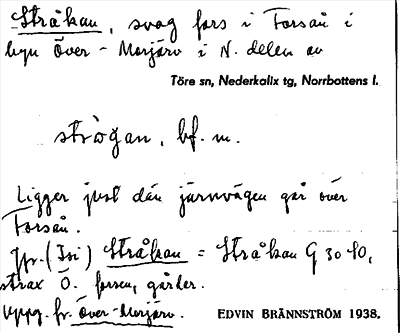 Stråkan, svag fors i Forsån i
byn Över-Morjärv i N. delen av
Töre sn, Nederkalix tg, Norrbottens l.
strògan, bf. m.
Ligger just där järnvägen går över
Forsån.
Jfr. (Isi) Stråkan = Stråkan G 30 40,
strax Ö. forsen, gårdar.
Uppg. fr. Över-Morjärv.
EDVIN BRÄNNSTRÖM 1938.